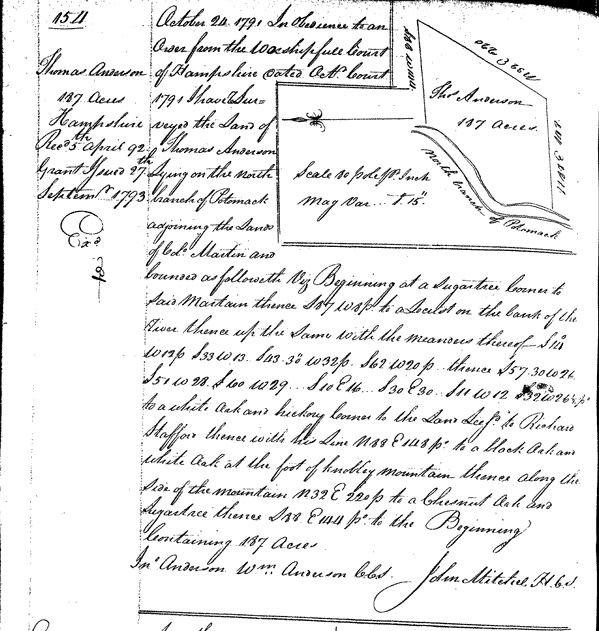 154
Thomas Anderson
137 Acres
Hampshire
Recd 5th April 92
Grant Issued 27th
Septemr 1793
Exd
October 24. 1791 In Obedience to an
Order from the Worshipfull Court
of Hampshire dated Octr. Court
1791 I have Sur-
veyed the Land of
Thomas Anderson
Lying on the North
branch of Potomack
adjoining the Lands
of Colo. Martin and
bounded as followeth Viz Beginning at a Sugartree Corner to
said Martain thence S87 W8p. to a Locust on the bank of the
River thence up the Same with the meanders thereof S14
W12p S33 W13.. S43.30 W32p. S62 W20p.. thence S57.30 W26
S51 W28. S60 W29... S10 E16... S30 E30.. S11 W12 S32 W26½ p.
to a white Oak and hickory Corner to the Land to Richard
Stafford thence with his Line N88 E148 p. to a black Oak and
white Oak at the foot of Knobley mountain thence along the
side of the mountain N32 E 220p to a Chesnut Oak and
Sugartree thence S88 E144 p. to the Beginning
Containing 137 Acres
Jno Anderson Wm. Anderson CCs. John Mitchel H.C.S.
Thos Anderson
137 Acres.
N32 E 220
North branch of Potomack
Scale 80 pole pr. Inch
Mag Var... 1°.15"